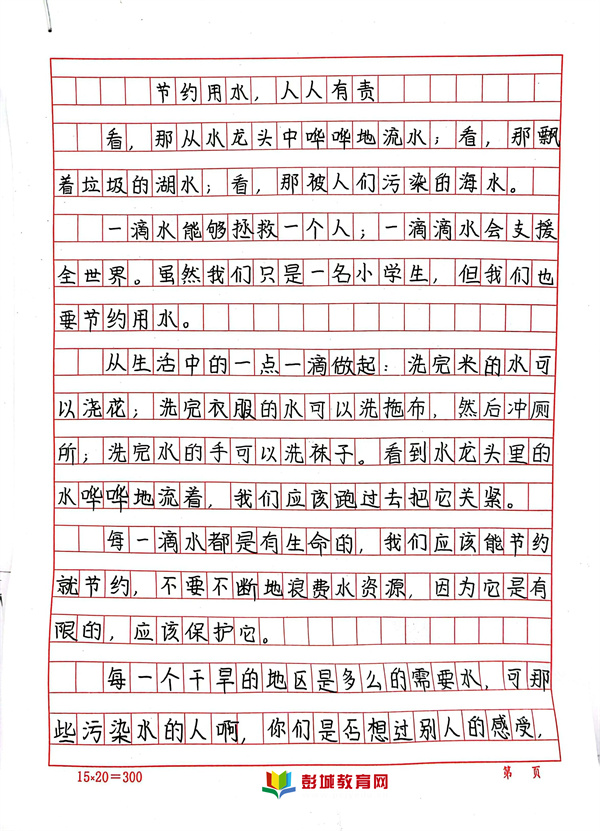 节约用水，人人有责
看，那从水龙头中哗哗地流水；看，那飘
着垃圾的湖水；看，那被人们污染的海水。
一滴水能够拯救一个人；一滴滴水会支援
全世界。虽然我们只是一名小学生，但我们也
要节约用水。
从生活中的一点一滴做起：洗完米的水可
以浇花；洗完衣服的水可以洗拖布，然后冲厕
所；洗完水的手可以洗袜子。看到水龙头里的
水哗哗地流着，我们应该跑过去把它关紧。
每一滴水都是有生命的，我们应该能节约
就节约，不要不断地浪费水资源，因为它是有
限的，应该保护它。
每一个干旱的地区是多么的需要水，可那
些污染水的人啊，你们是否想过别人的感受，
15×20＝300
彭城教育网
第 页